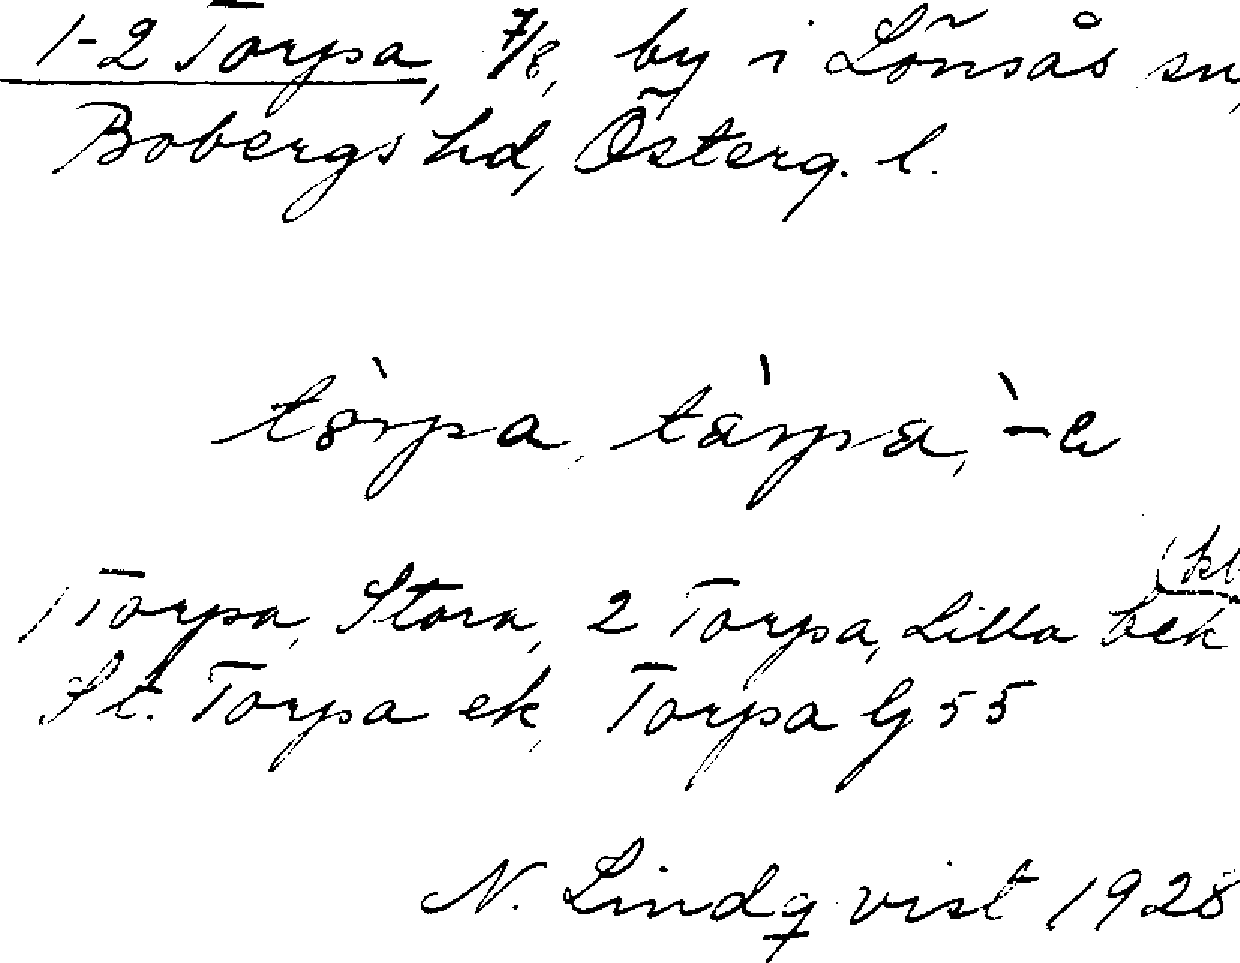 1-2 Torpa, 7/8, by i Lönsås sn,
Bobergs hd, Österg. l.
tòrpa, tàrpa, -̀a
1 Torpa, Stora, 2 Torpa, Lilla bek (kl
St. Torpa ek, Torpa G 55
N. Lindqvist 1928